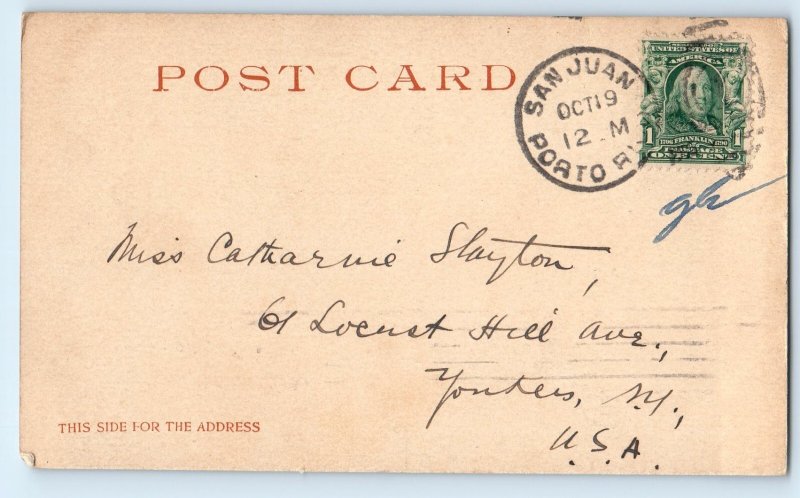 POST CARD
SAN JUAN
OCT 19
12 M
PORTO R
SERIES 1902
UNITED STATES OF
AMERICA
1 1706 FRANKLIN 1790 1
POSTAGE
ONE CENT
Miss Catharine Slayton,
61 Locust Hill Ave.,
Yonkers, N.Y.,
U.S.A.
THIS SIDE FOR THE ADDRESS